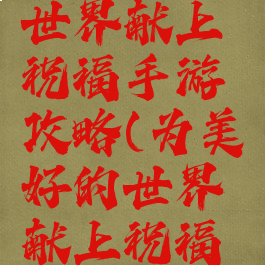 世界献上
祝福手游
攻略(为美
好的世界
献上祝福